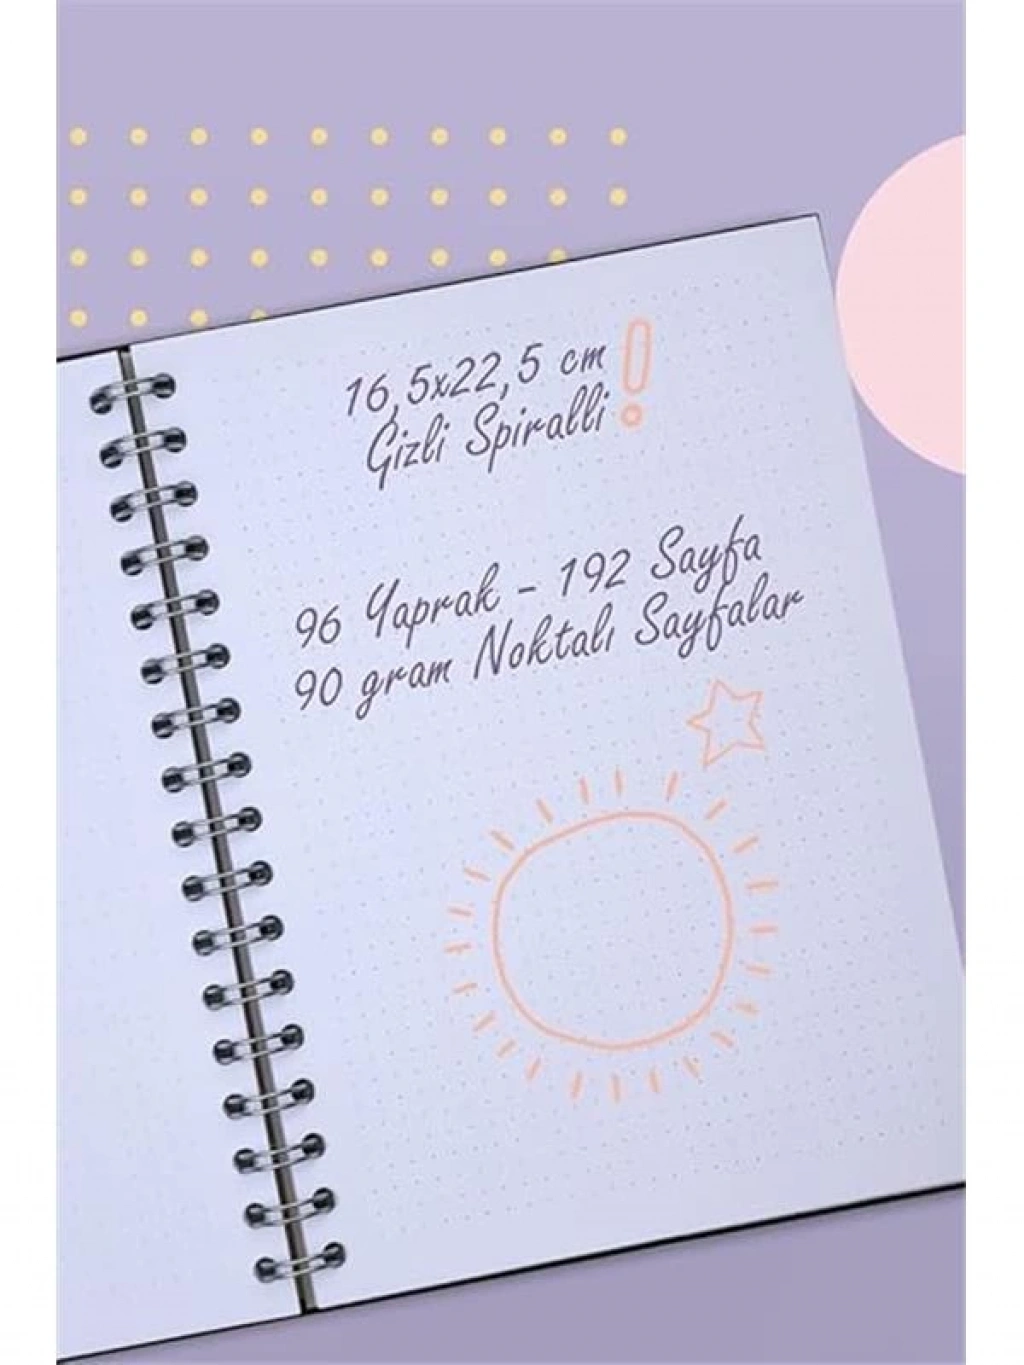 16,5x22,5 cm
Gizli Spiralli
96 Yaprak - 192 Sayfa
90 gram Noktalı Sayfalar